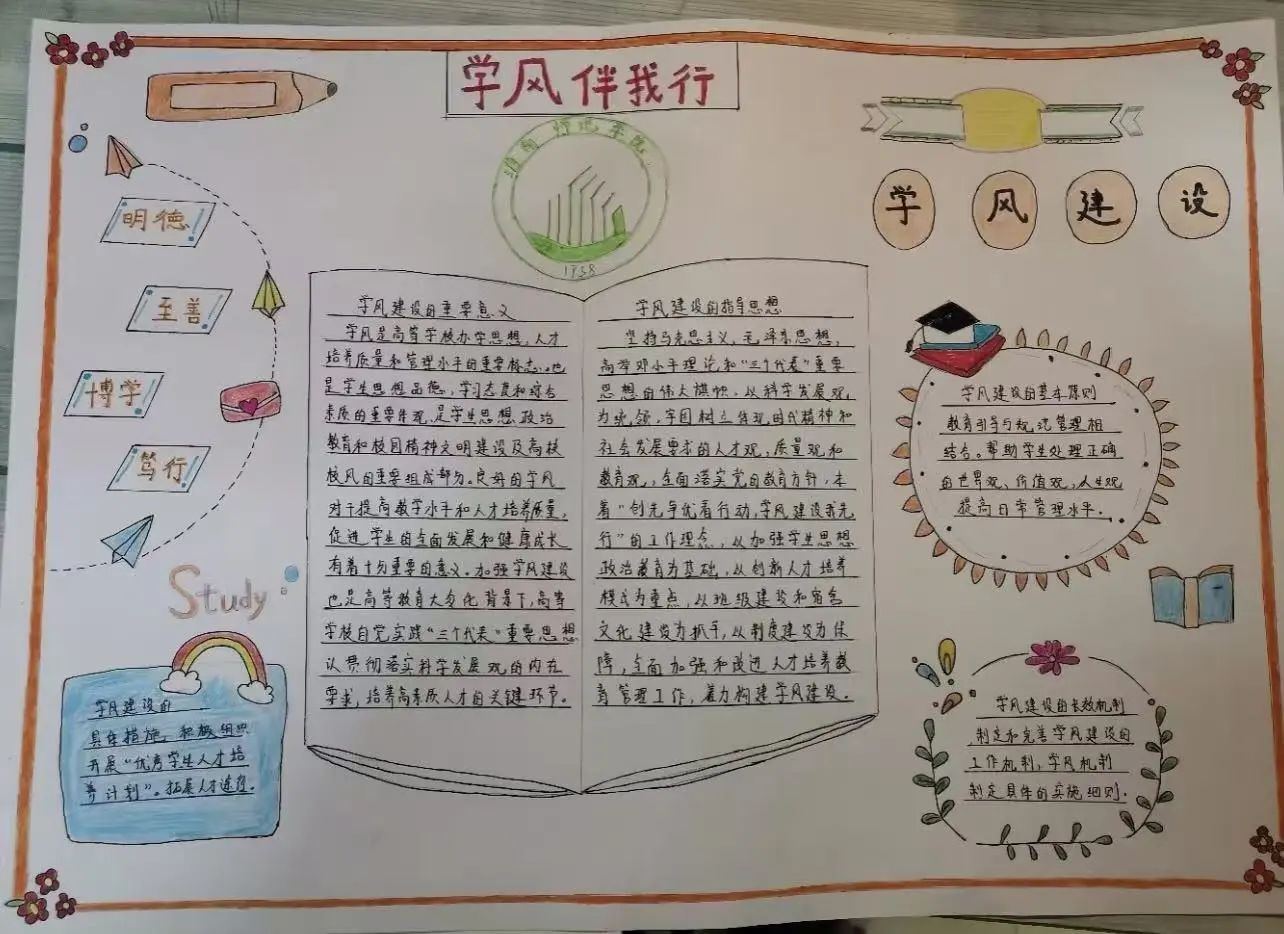 学风伴我行
淮南师范学院
1958
明德
至善
博学
笃行
Study
学风建设的
具体措施,积极组织
开展“优秀学生人才培
养计划”。拓展人才途径。
学风建设的重要意义
学风是高等学校办学思想,人才
培养质量和管理水平的重要标志。也
是学生思想品德,学习态度和综合
素质的重要体现,是学生思想政治
教育和校园精神文明建设及高校
校风的重要组成部分。良好的学风
对于提高教学水平和人才培养质量,
促进学生的全面发展和健康成长
有着十分重要的意义。加强学风建设
也是高等教育大众化背景下,高等
学校自觉实践“三个代表”重要思想
认贯彻落实科学发展观的内在
要求,培养高素质人才的关键环节。
学风建设的指导思想
坚持马克思主义,毛泽东思想,
高举邓小平理论和“三个代表”重要
思想的伟大旗帜,以科学发展观
为统领,牢固树立体现时代精神和
社会发展要求的人才观,质量观和
教育观,全面落实党的教育方针,本
着“创先争优看行动,学风建设我先
行”的工作理念,以加强学生思想
政治教育为基础,以创新人才培养
模式为重点,以班级建设和宿舍
文化建设为抓手,以制度建设为保
障,全面加强和改进人才培养教
育管理工作,着力构建学风建设。
学风建设
学风建设的基本原则
教育引导与规范管理相
结合。帮助学生处理正确
的世界观、价值观,人生观
提高日常管理水平.
学风建设的长效机制
制定和完善学风建设的
工作机制,学风机制
制定具体的实施细则.